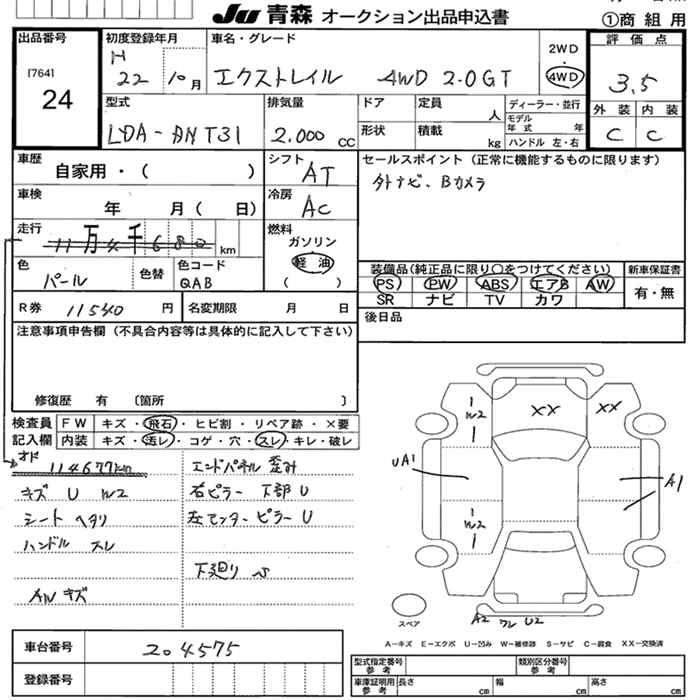 JU 青森 オークション出品申込書
①商組用
出品番号
[764]
24
初度登録年月
H
22 10月
車名・グレード
エクストレイル 4WD 2.0GT
2WD
4WD
評価点
3.5
外装 内装
C C
型式
LDA-DNT31
排気量
2.000 CC
ドア
形状
定員 人
積載 kg
ディーラー・並行
モデル年式 年
ハンドル 左・右
車歴
自家用・( )
シフト
AT
車検
年 月( 日)
冷房
AC
走行
11万4千680 km
燃料
ガソリン
軽油
( )
色
パール
色替
色コード
QAB
R券 11540 円
名変期限 月 日
セールスポイント(正常に機能するものに限ります)
外ナビ、Bカメラ
装備品(純正品に限り○をつけてください)
PS PW ABS エアB AW
SR ナビ TV カワ
新車保証書
有・無
後日品
注意事項申告欄(不具合内容等は具体的に記入して下さい)
修復歴 有 〔箇所 〕
検査員
記入欄
FW キズ・飛石・ヒビ割・リペア跡・×要
内装 キズ・汚レ・コゲ・穴・スレ・キレ・破レ
オド
114677km
キズ U W2
シート ヘタリ
ハンドル スレ
AW キズ
エンドパネル 歪み
右ピラー 下部 U
左センターピラー U
下廻り S
W2
XX
XX
UA1
A1
W2
A2 ワレ U2
スペア
A-キズ E-エクボ U-凹み W-補修跡 S-サビ C-腐食 XX-交換済
車台番号
204575
登録番号
型式指定番号
参考
類別区分番号
参考
車庫証明用
参考
長さ cm
幅 cm
高さ cm